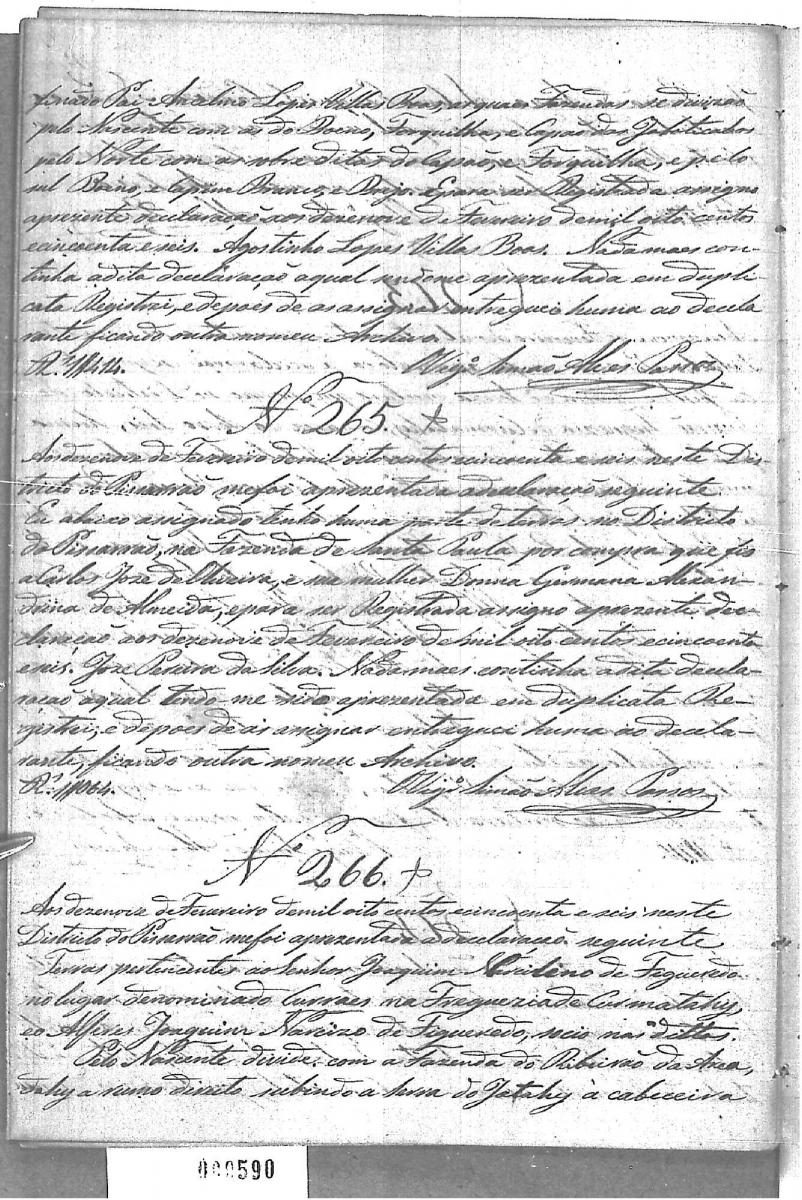 finado Pai Ancelmo Lopes Villas Boas, as quaes Fazendas se divizão
pelo Nascente com as do Boeno, Forquilha, e Capão das Jaboticabas
pelo Norte com as sobre ditas do Capão, e Forquilha, e pelo
sul Boeno, e Capim Branco, e Brejo. E para ser Registrada assigno
aprezente declaração aos dezenove de Fevereiro de mil oito centos
e cincoenta e seis. Agostinho Lopes Villas Boas. Nada maes con-
tinha a dita declaração a qual sendome aprezentada em dupli-
cata Registrei, e depoes de as assignar entreguei huma ao decla
rante ficando outra no meu Archivo.
Rs 1/1414. Vigº Simão Alves Passos
Nº 265. +
Aos dezenove de Fevereiro de mil oito centos e cincoenta e seis neste Dis-
tricto do Pissarrão me foi aprezentada a declaração seguinte
Eu abaixo assignado tenho huma parte de terras no Districto
do Pissarrão, na Fazenda de Santa Paula por compra que fis
a Carlos Joze de Oliveira, e sua mulher Donna Germana Alexan-
drina de Almeida, e para ser Registrada assigno aprezente dec-
claração aos dezenove de Fevereiro de mil oito centos e cincoenta
e seis. Joze Pereira da Silva. Nada maes continha a dita decla-
ração a qual tendo me sido aprezentada em duplicata Re-
gistrei, e depoes de as assignar entreguei huma ao decla-
rante, ficando outra no meu Archivo.
Rs. 1/1064. Vigº Simão Alves Passos
Nº 266. +
Aos dezenove de Fevereiro de mil oito centos e cincoenta e seis neste
Districto do Pissarrão me foi aprezentada a declaração seguinte
Terras pertencentes ao Senhor Joaquim de Figueredo
no lugar denominado Curraes na Freguezia de Curmatahy,
e o Alferes Joaquim Narcizo de Figueredo, socio nas dittas.
Pelo Nascente divide com a Fazenda do Ribeirão da Area,
dahy a rumo direito subindo a serra do Jatahy à cabeceira
000590